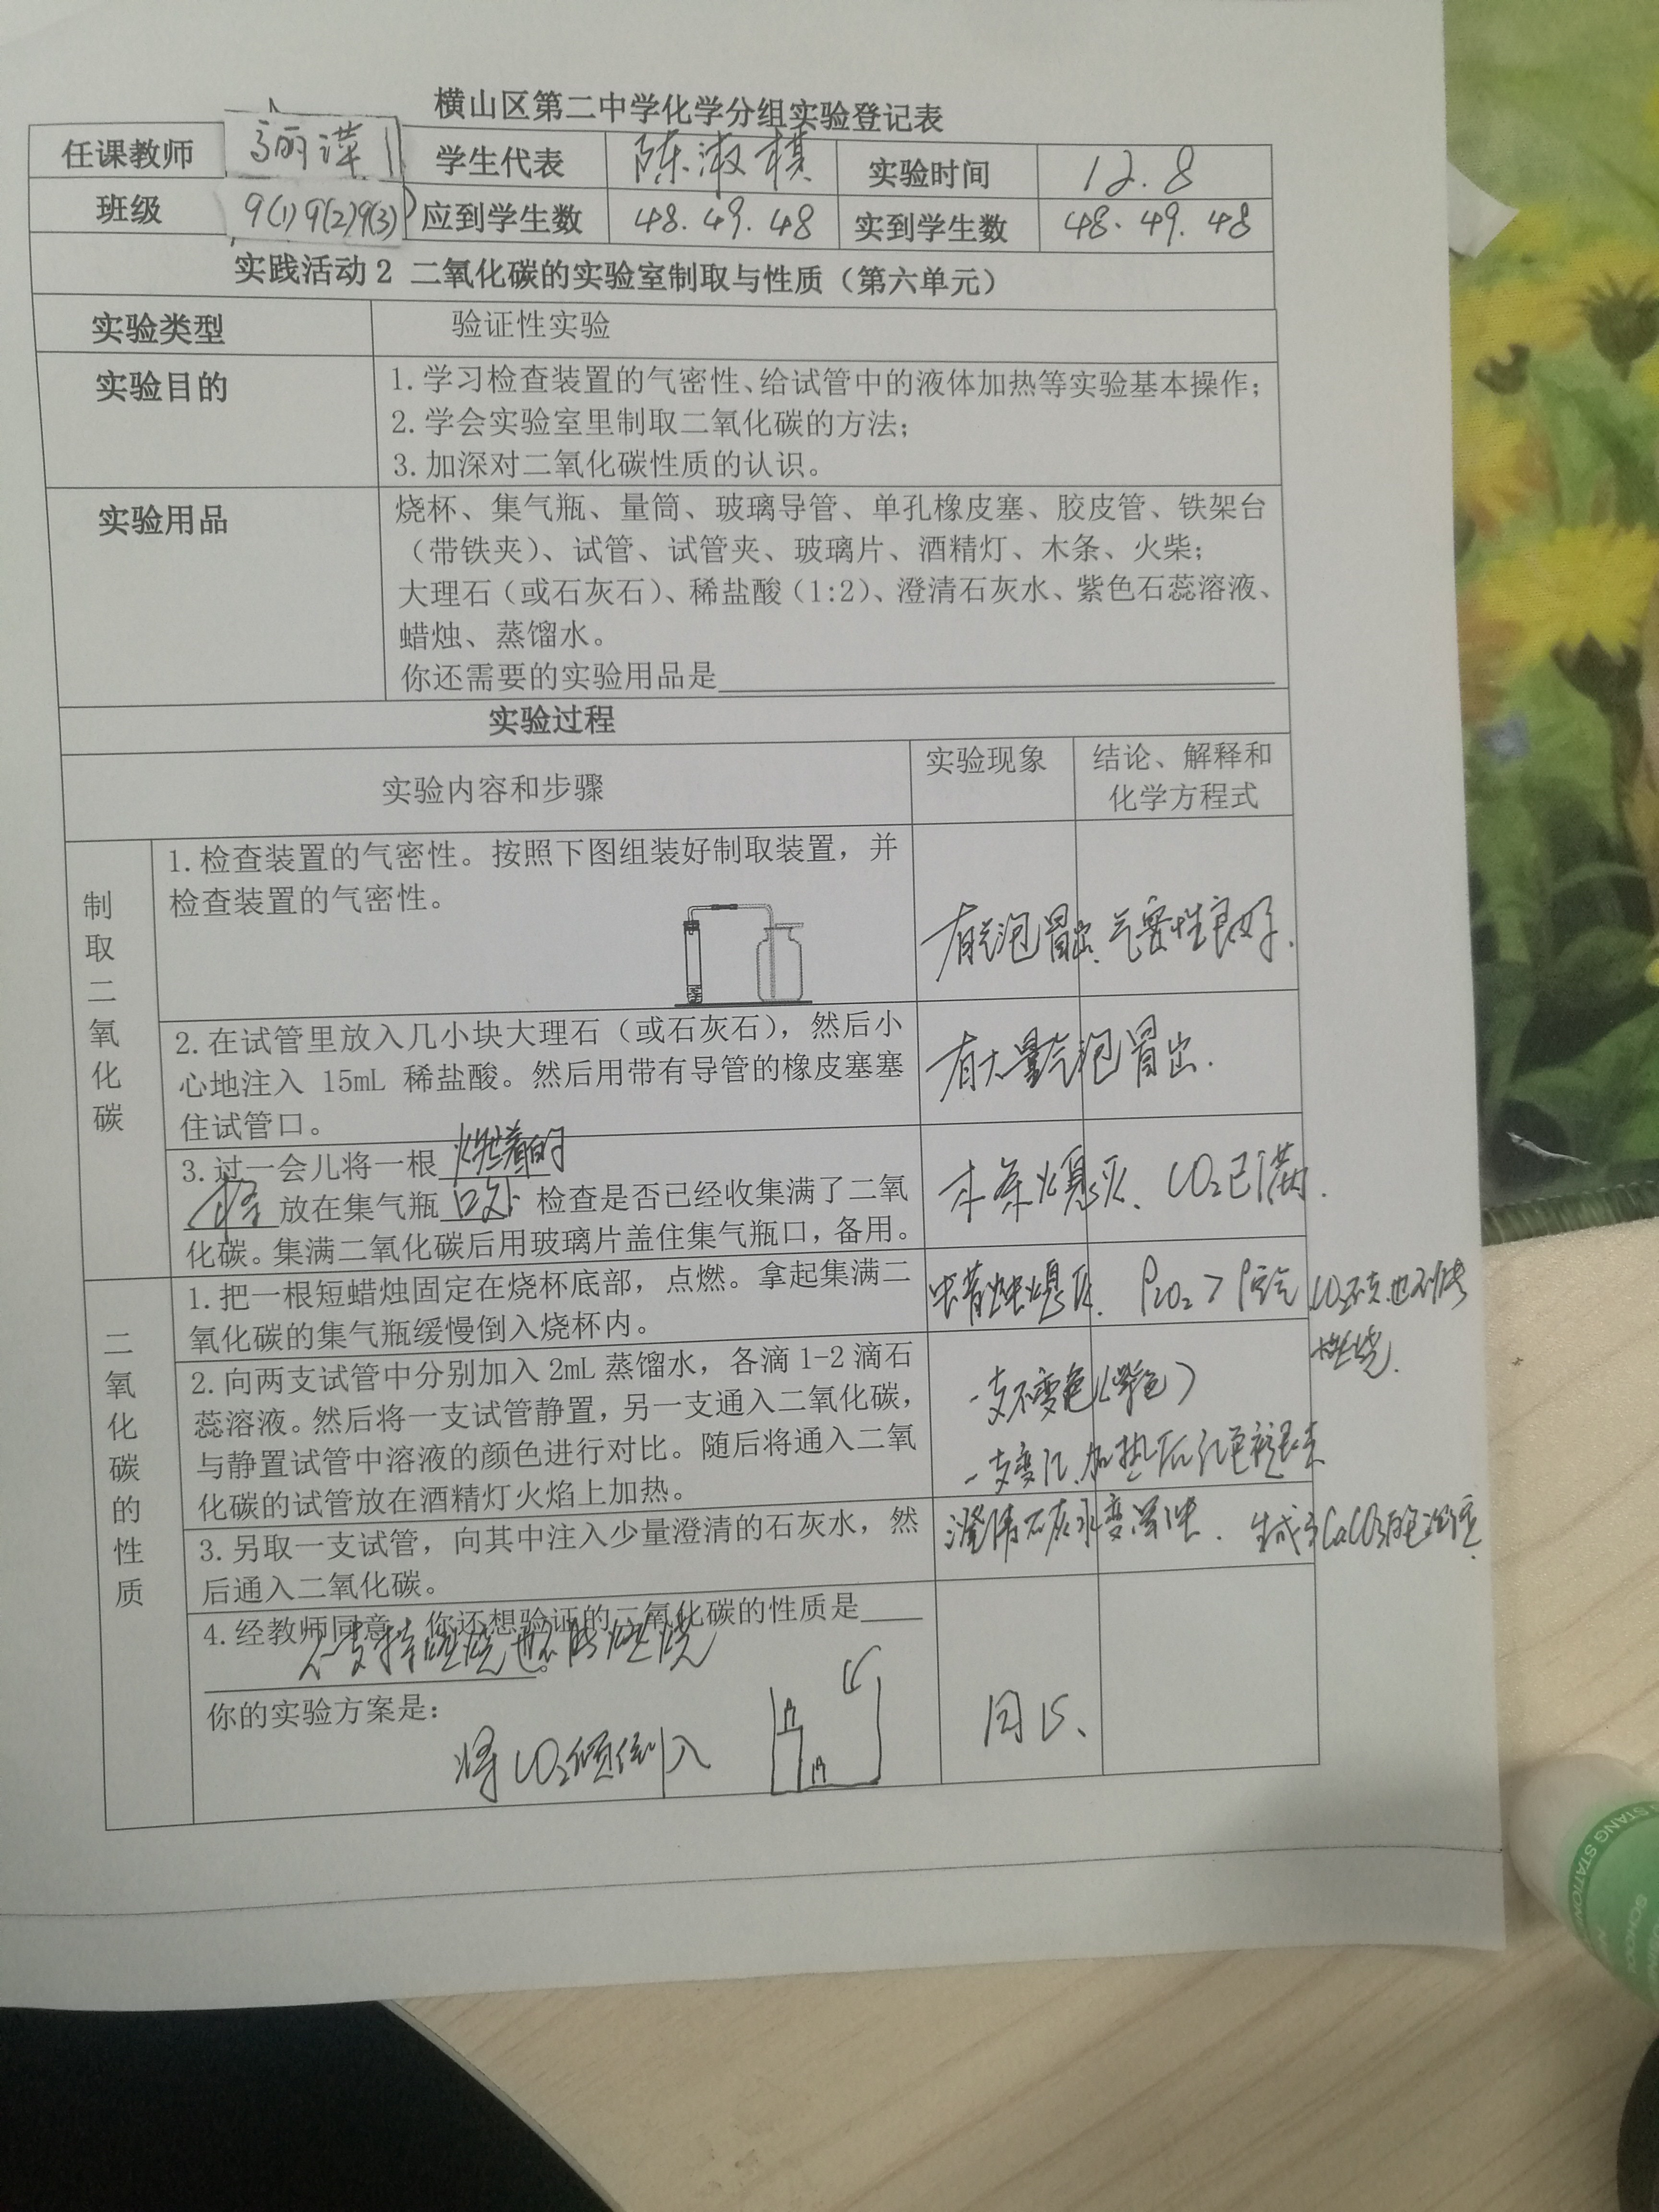 横山区第二中学化学分组实验登记表
任课教师 学生代表 陈淑棋 实验时间 12.8
班级 9(1)9(2)9(3) 应到学生数 48.49.48 实到学生数 48.49.48
实践活动2 二氧化碳的实验室制取与性质（第六单元）
实验类型 验证性实验
实验目的 1.学习检查装置的气密性、给试管中的液体加热等实验基本操作；
2.学会实验室里制取二氧化碳的方法；
3.加深对二氧化碳性质的认识。
实验用品 烧杯、集气瓶、量筒、玻璃导管、单孔橡皮塞、胶皮管、铁架台
（带铁夹）、试管、试管夹、玻璃片、酒精灯、木条、火柴；
大理石（或石灰石）、稀盐酸（1:2）、澄清石灰水、紫色石蕊溶液、
蜡烛、蒸馏水。
你还需要的实验用品是
实验过程
实验内容和步骤 实验现象 结论、解释和
化学方程式
制取二氧化碳
1.检查装置的气密性。按照下图组装好制取装置，并
检查装置的气密性。
有气泡冒出、气密性良好.
2.在试管里放入几小块大理石（或石灰石），然后小
心地注入 15mL 稀盐酸。然后用带有导管的橡皮塞塞
住试管口。
有大量气泡冒出.
3.过一会儿将一根 燃着的
放在集气瓶 口处 检查是否已经收集满了二氧
化碳。集满二氧化碳后用玻璃片盖住集气瓶口，备用。
木条熄灭、CO₂已满.
二氧化碳的性质
1.把一根短蜡烛固定在烧杯底部，点燃。拿起集满二
氧化碳的集气瓶缓慢倒入烧杯内。
蜡烛熄灭.
燃烧.
2.向两支试管中分别加入 2mL 蒸馏水，各滴 1-2 滴石
蕊溶液。然后将一支试管静置，另一支通入二氧化碳，
与静置试管中溶液的颜色进行对比。随后将通入二氧
化碳的试管放在酒精灯火焰上加热。
一支不变色（紫色）
一支变红、加热后红色褪去
3.另取一支试管，向其中注入少量澄清的石灰水，然
后通入二氧化碳。
澄清石灰水变浑浊. 生成了CaCO₃白色沉淀.
4.经教师同意，你还想验证的二氧化碳的性质是
不支持燃烧也不能燃烧。
你的实验方案是：
将CO₂倾倒入
同上、
STANG STATION
SCHOOL